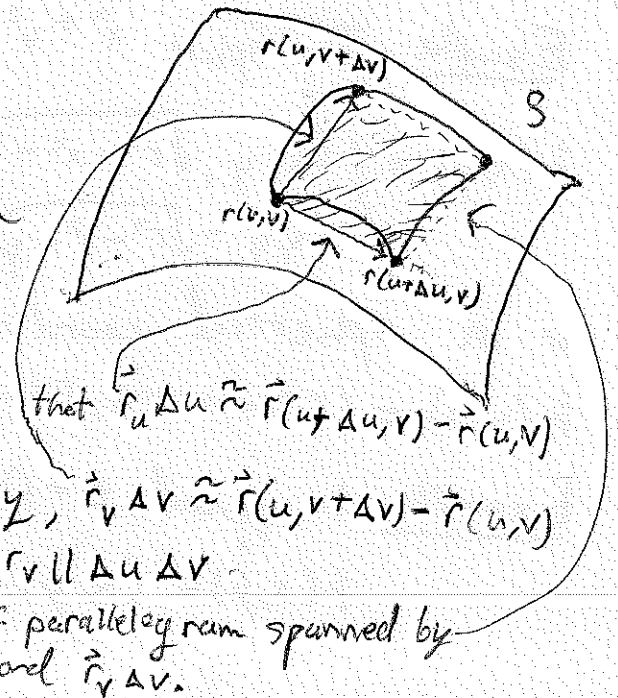 r(u, v+Δv)
S
r(u,v)
r(u+Δu, v)
that r⃗ᵤ Δu ≈ r⃗(u+Δu, v) - r⃗(u,v)
y, r⃗ᵥ Δv ≈ r⃗(u, v+Δv) - r⃗(u,v)
rᵥ|| Δu Δv
parallelogram spanned by
and r⃗ᵥ Δv.